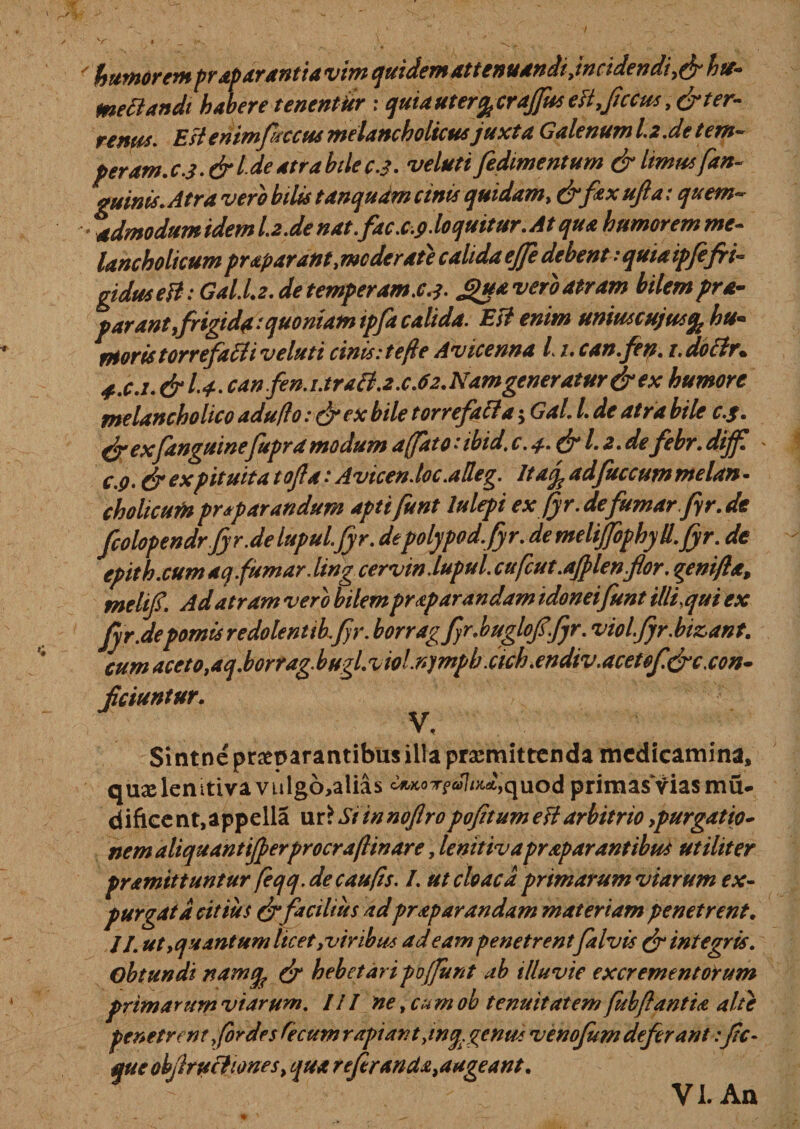 humorem præparantia vim quidem attenuandi,incidendi,& hu-
mectandi habere tenentur : quia uterq; crassus est, siccus, & ter-
renus. Est enim succus melancholicus juxta Galenum l.2.de tem-
peram.c.3. & l.de atra bile c.3. veluti sedimentum & limus san-
guinis. Atra vero bilis tanquam cinis quidam, & fæx usta: quem-
admodum idem l.2.de nat.fac.c.9.loquitur. At quæ humorem me-
lancholicum præparant,moderate calida esse debent: quia ipse fri-
gidus est: Gal.l.2. de temperam.c.3. Quæ vero atram bilem præ-
parant,frigida: quoniam ipsa calida. Est enim uniuscujusq; hu-
moris torrefacti veluti cinis: teste Avicenna l. 1. can.fen. 1.doctr.
4.c.1. & l.4. can fen.1.tract.2.c.62. Nam generatur & ex humore
melancholico adusto: & ex bile torrefacta; Gal. l. de atra bile c.5.
& ex sanguine supra modum assato: ibid. c. 4. & l. 2. de febr. diff.
c.9. & ex pituita tosta: Avicen.loc.alleg. Itaq; ad succum melan-
cholicum præparandum apti sunt Iulepi ex syr. de fumar. syr. de
scolopendr syr.de lupul. syr. de polypod. syr. de melissophyll. syr. de
epith.cum aq.fumar.ling cervin.lupul.cuscut.asplen.flor. genistæ,
meliss. Ad atram vero bilem præparandam idonei sunt illi,qui ex
syr.de pomis redolentib.syr. borrag syr.bugloss.syr. viol.syr.bizant.
cum aceto,aq.borrag.bugl.viol.nymph.cich.endiv.acetos.&c.con-
ficiuntur.
V.
Sintne præparantibus illa præmittenda medicamina,
quæ lenitiva vulgò,aliàs quod primas vias mū-
dificent,appellā ur? Si in nostro positum est arbitrio,purgatio-
nem aliquantisper procrastinare, lenitiva præparantibus utiliter
præmittuntur seqq. de causis. I. ut cloacâ primarum viarum ex-
purgatâ citius & facilius ad præparandam materiam penetrent.
II. ut,quantum licet,viribus ad eam penetrent salvis & integris.
Obtundi namq; & hebetari possunt ab illuvie excrementorum
primarum viarum. III ne, cum ob tenuitatem substantiæ alte
penetrent,sordes secum rapiant,inq; genus venosum deferant: sic-
que obstructiones, quæ reserandæ,augeant.
VI. An